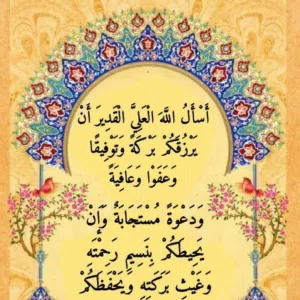 أَسْأَلُ اللَّهَ الْعَلِيَّ الْقَدِيرَ أَنْ
يَرْزُقَكُمْ بَرَكَةً وَتَوْفِيقًا
وَعَفْوًا وَعَافِيَةً
وَدَعْوَةً مُسْتَجَابَةً وَإِنْ
يُحِيطَكُمْ بِنَسِيمِ رَحْمَتِهِ
وَغَيْثِ بَرَكَتِهِ وَيَحْفَظَكُمْ